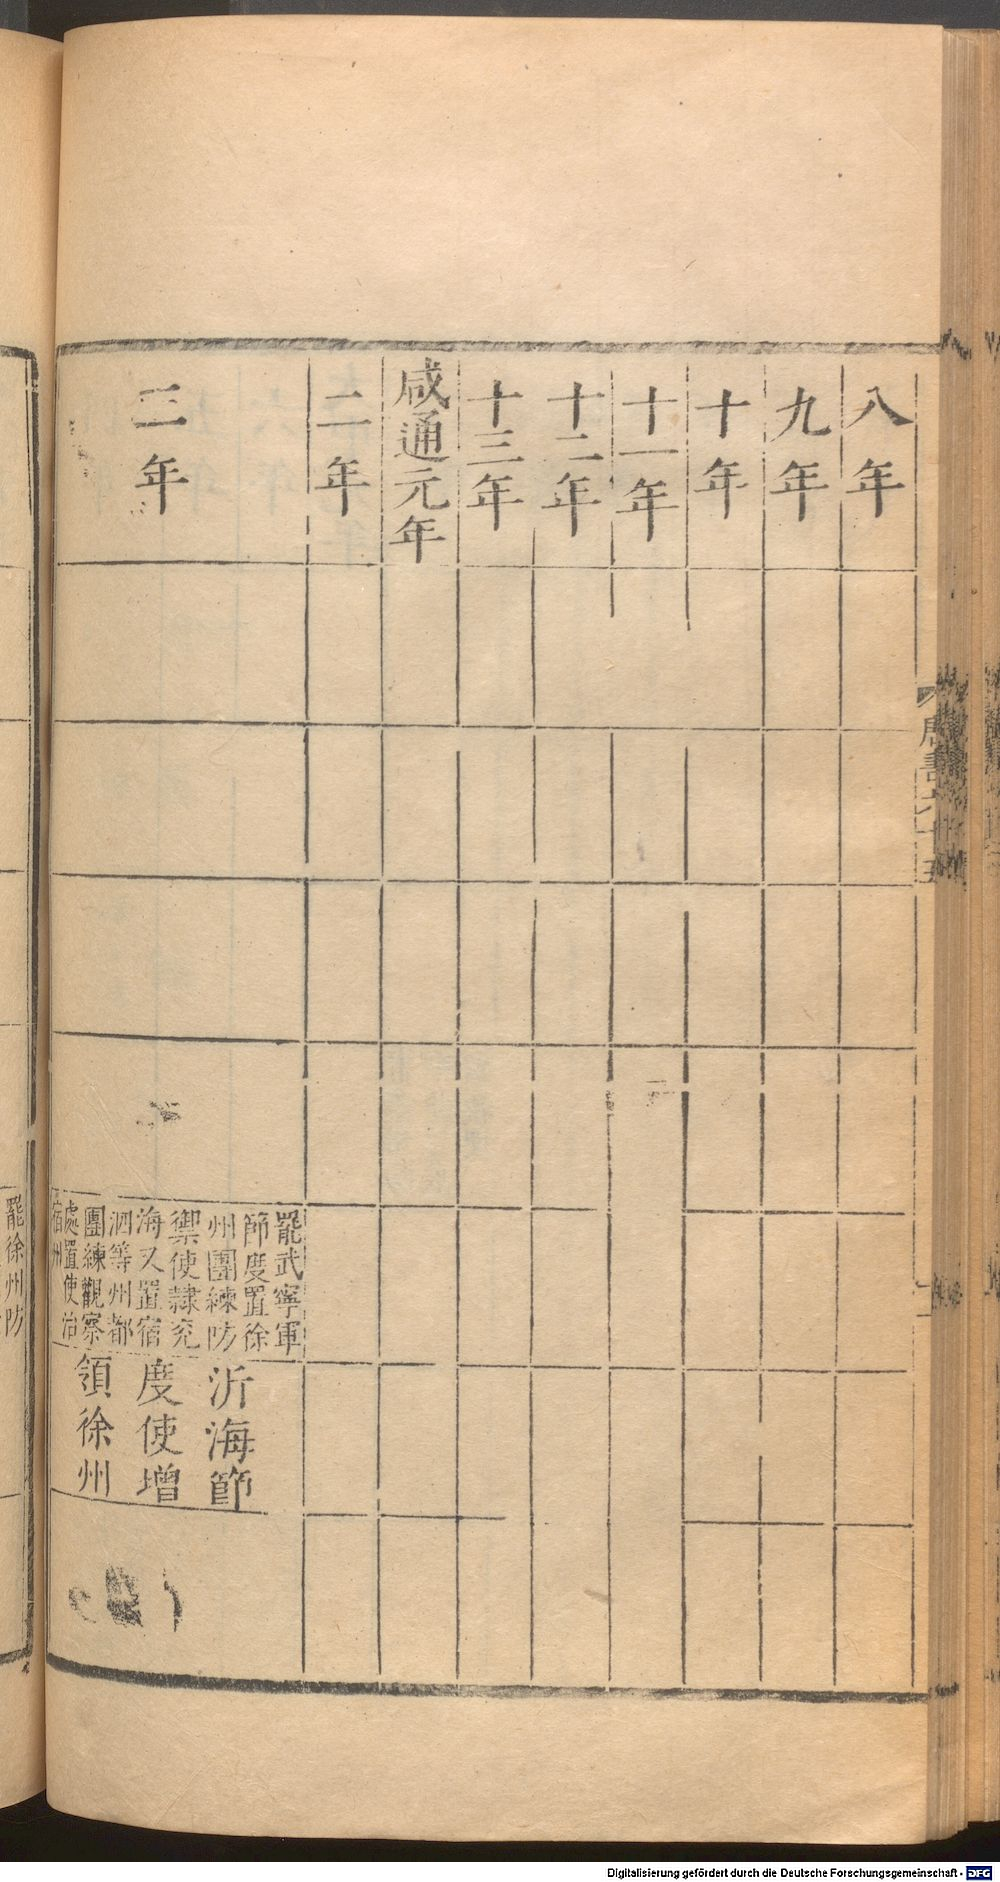 八年
九年
十年
十一年
十二年
十三年
咸通元年
二年
三年
罷武寧軍
節度置徐
州團練防
禦使隸兗
海又置宿
泗等州都
團練觀察
處置使治
宿州
沂海節
度使增
領徐州
唐書六十五
罷徐州防
Digitalisierung gefördert durch die Deutsche Forschungsgemeinschaft - DFG